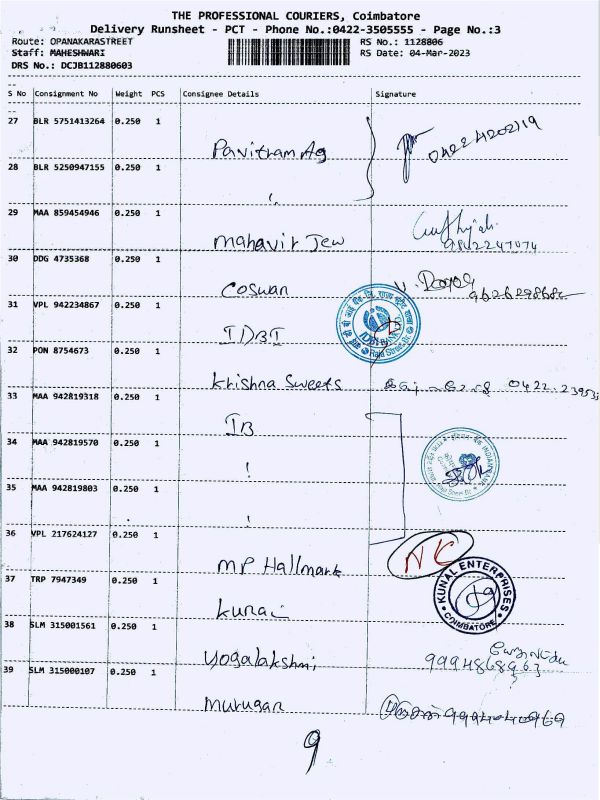 THE PROFESSIONAL COURIERS, Coimbatore
Delivery Runsheet - PCT - Phone No.:0422-3505555 - Page No.:3
Route: OPANAKARASTREET
RS No.: 1128806
Staff: MAHESHWARI
RS Date: 04-Mar-2023
DRS No.: DCJB112880603
S No Consignment No Weight PCS Consignee Details Signature
27 BLR 5751413264 0.250 1
Pavithram Ag
28 BLR 5250947155 0.250 1
29 MAA 859454946 0.250 1
Mahavir Jew 9842247074
30 DDG 4735368 0.250 1
Coswan
31 VPL 942234867 0.250 1
IDBI
32 PON 8754673 0.250 1
Krishna Sweets
33 MAA 942819318 0.250 1
IB
34 MAA 942819570 0.250 1
!
35 MAA 942819803 0.250 1
!
36 VPL 217624127 0.250 1
MP Hallmark NC
37 TRP 7947349 0.250 1
KUNAL ENTERPRISES
COIMBATORE
38 SLM 315001561 0.250 1
Yogalakshmi
39 SLM 315000107 0.250 1
Murugan
9